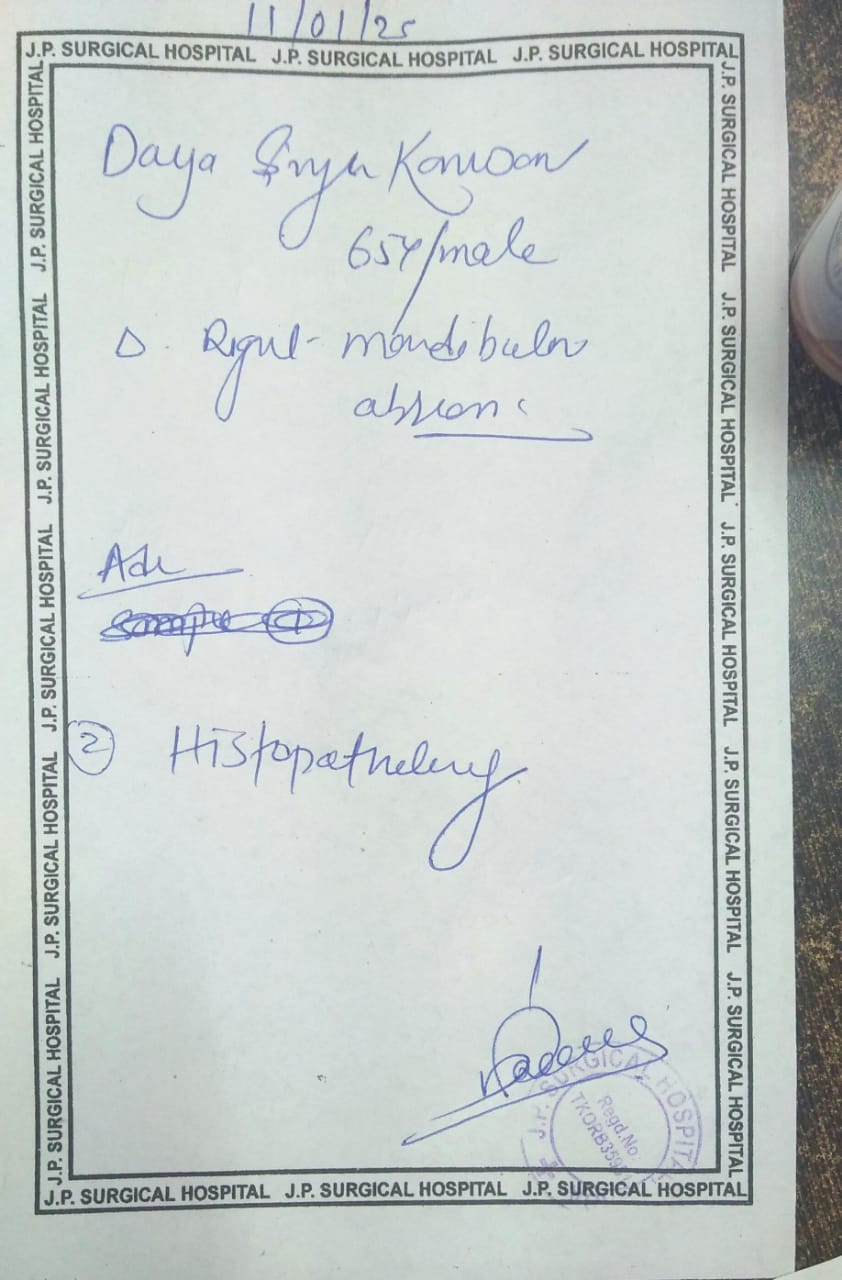 11/01/25
J.P. SURGICAL HOSPITAL J.P. SURGICAL HOSPITAL J.P. SURGICAL HOSPITAL
Daya Singh
65Y/male
Δ. Right mandibular
Adv
②  Histopathology
J.P. SURGICAL HOSPITAL
Regd.No.
J.P. SURGICAL HOSPITAL J.P. SURGICAL HOSPITAL J.P. SURGICAL HOSPITAL
J.P. SURGICAL HOSPITAL J.P. SURGICAL HOSPITAL J.P. SURGICAL HOSPITAL J.P. SURGICAL HOSPITAL J.P. SURGICAL HOSPITAL
J.P. SURGICAL HOSPITAL J.P. SURGICAL HOSPITAL J.P. SURGICAL HOSPITAL J.P. SURGICAL HOSPITAL J.P. SURGICAL HOSPITAL